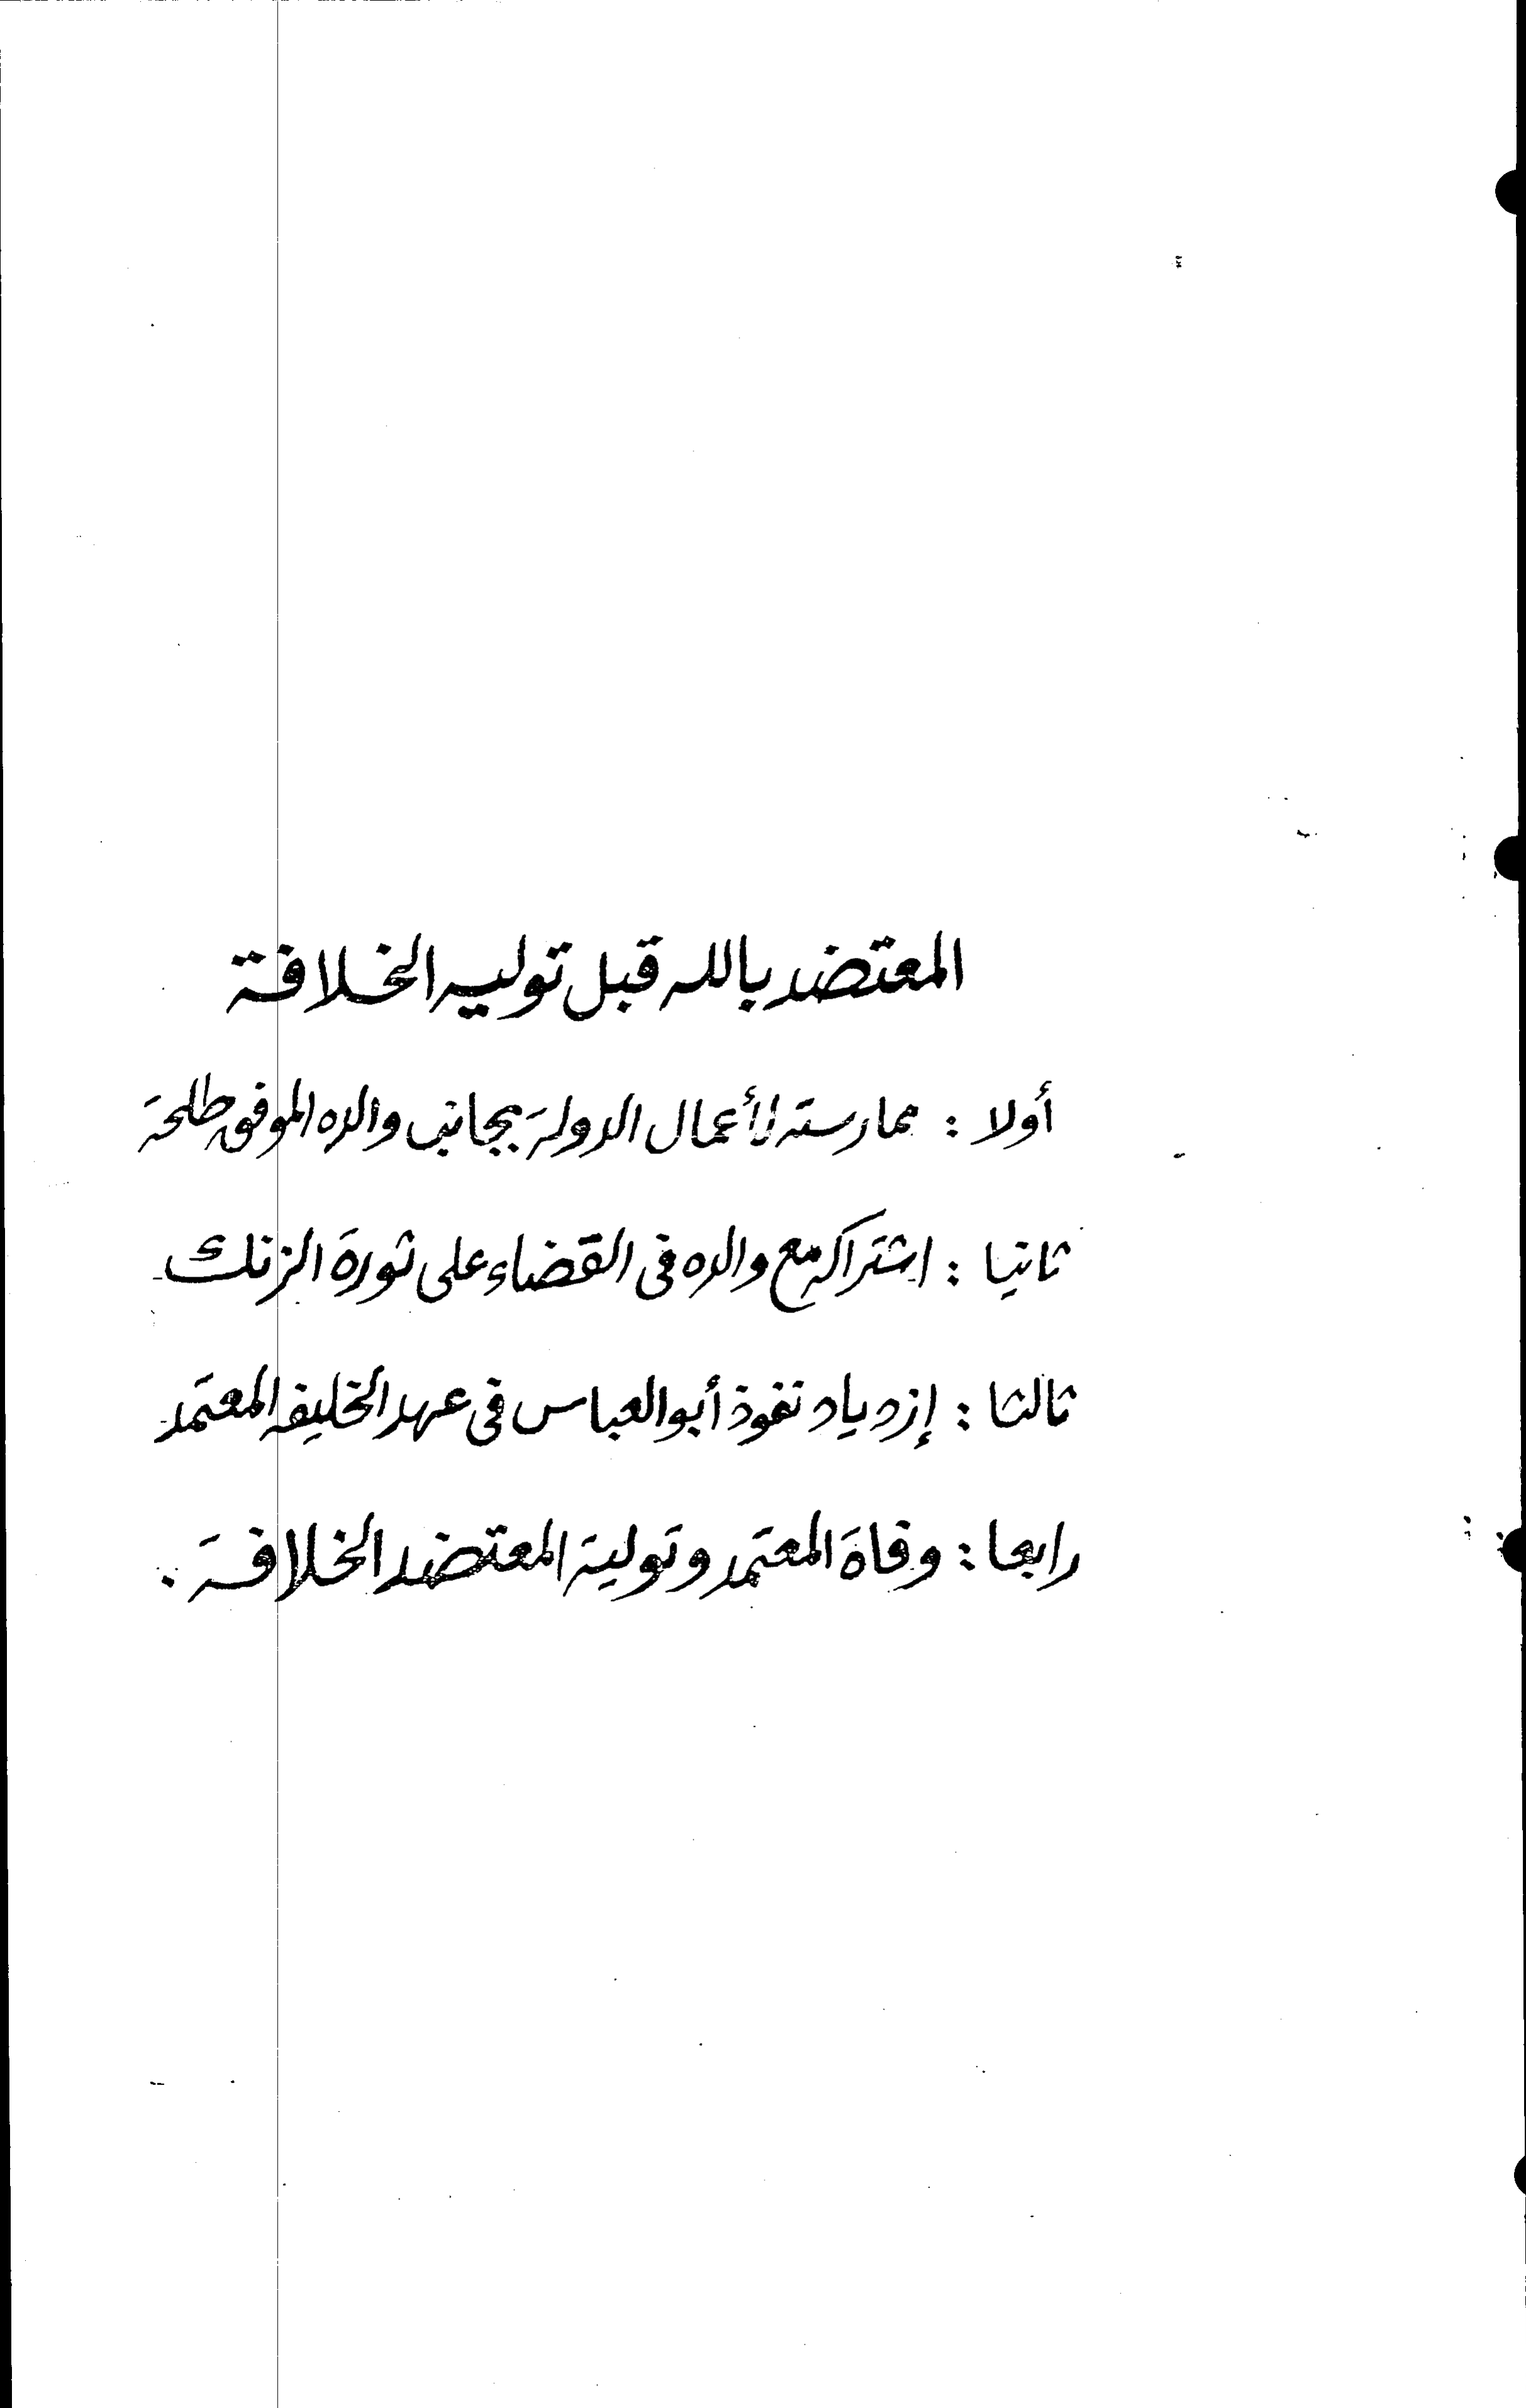 المعتضد بالله قبل توليه الخلافة
أولا : ممارسته لأعمال الدولة بجانب والده الموفق طلحة
ثانيا : اشتراكه مع والده فى القضاء على ثورة الزنك
ثالثا : إزدياد نفوذ أبوالعباس فى عهد الخليفه المعتمد
رابعا : وفاة المعتمد وتولية المعتضد الخلافة .